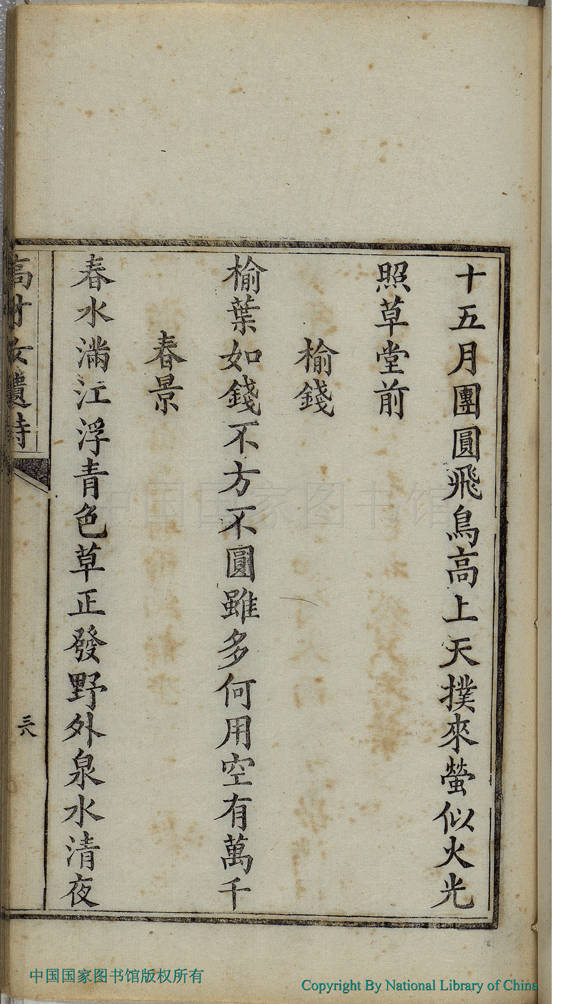 十五月團圓飛鳥高上天撲來螢似火光
照草堂前
榆錢
榆葉如錢不方不圓雖多何用空有萬千
春景
春水滿江浮青色草正發野外泉水清夜
高才女遺詩
中国国家图书馆
中国国家图书馆版权所有
Copyright By National Library of China